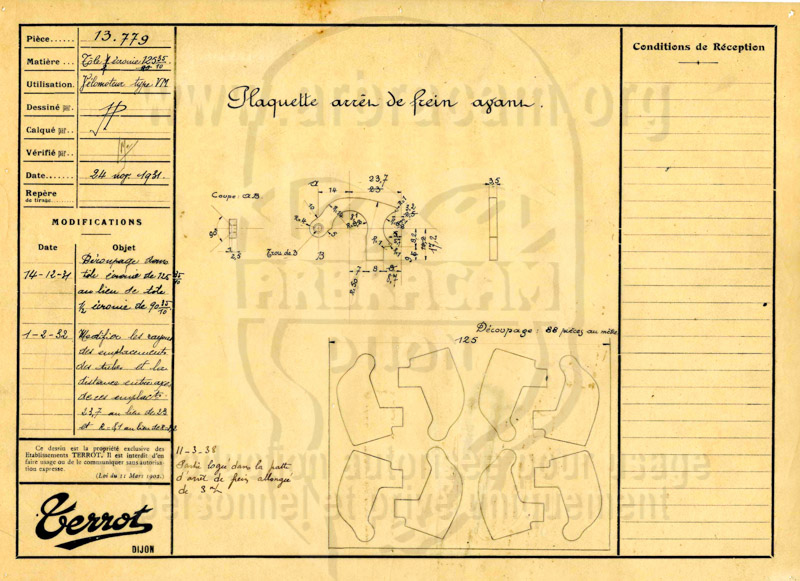 Pièce...... 13.779
Matière... Tôle écrouie 125 35/10
Utilisation. Vélomoteur type VM
Dessiné par.
Calqué par..
Vérifié par..
Date....... 24 nov. 1931
Repère
de tirage.
MODIFICATIONS
Date Objet
14-12-31 Découpage dans
tôle écrouie de 125 35/10
au lieu de tôle
1/2 écrouie de 90 35/10
1-2-32 Modifier les rayons
des emplacements
des tubes et la
distance entre axes
de ces emplacts
23,7 au lieu de 23
et
Ce dessin est la propriété exclusive des
Etablissements TERROT. Il est interdit d'en
faire usage ou de le communiquer sans autorisa-
tion expresse.
(Loi du 11 Mars 1902.)
Terrot
DIJON
Plaquette arrêt de frein avant.
Coupe: AB
A
14
23,7
23
3,5
B
Trou de 8
2,3
17,2
7 8
Découpage: 88 pièces au mètre
125
11-3-38
dans la patte
d'arrêt de frein allongée
de 3 m/m
Conditions de Réception
www.arbracam.org
ARBRACAM
DIJON
Reproduction autorisée pour usage
personnel et privé uniquement